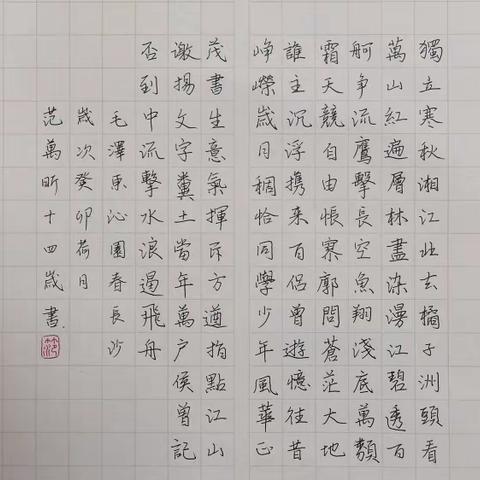 獨立寒秋湘江北去橘子洲頭看
萬山紅遍層林盡染漫江碧透百
舸争流鷹擊長空魚翔淺底萬類
霜天競自由悵寥廓問蒼茫大地
誰主沉浮携来百侶曾遊憶往昔
崢嶸歲月稠恰同學少年風華正
茂書生意氣揮斥方遒指點江山
激揚文字糞土當年萬户侯曾記
否到中流擊水浪遏飛舟
毛澤東沁園春長沙
歲次癸卯荷月
范萬昕十四歲書